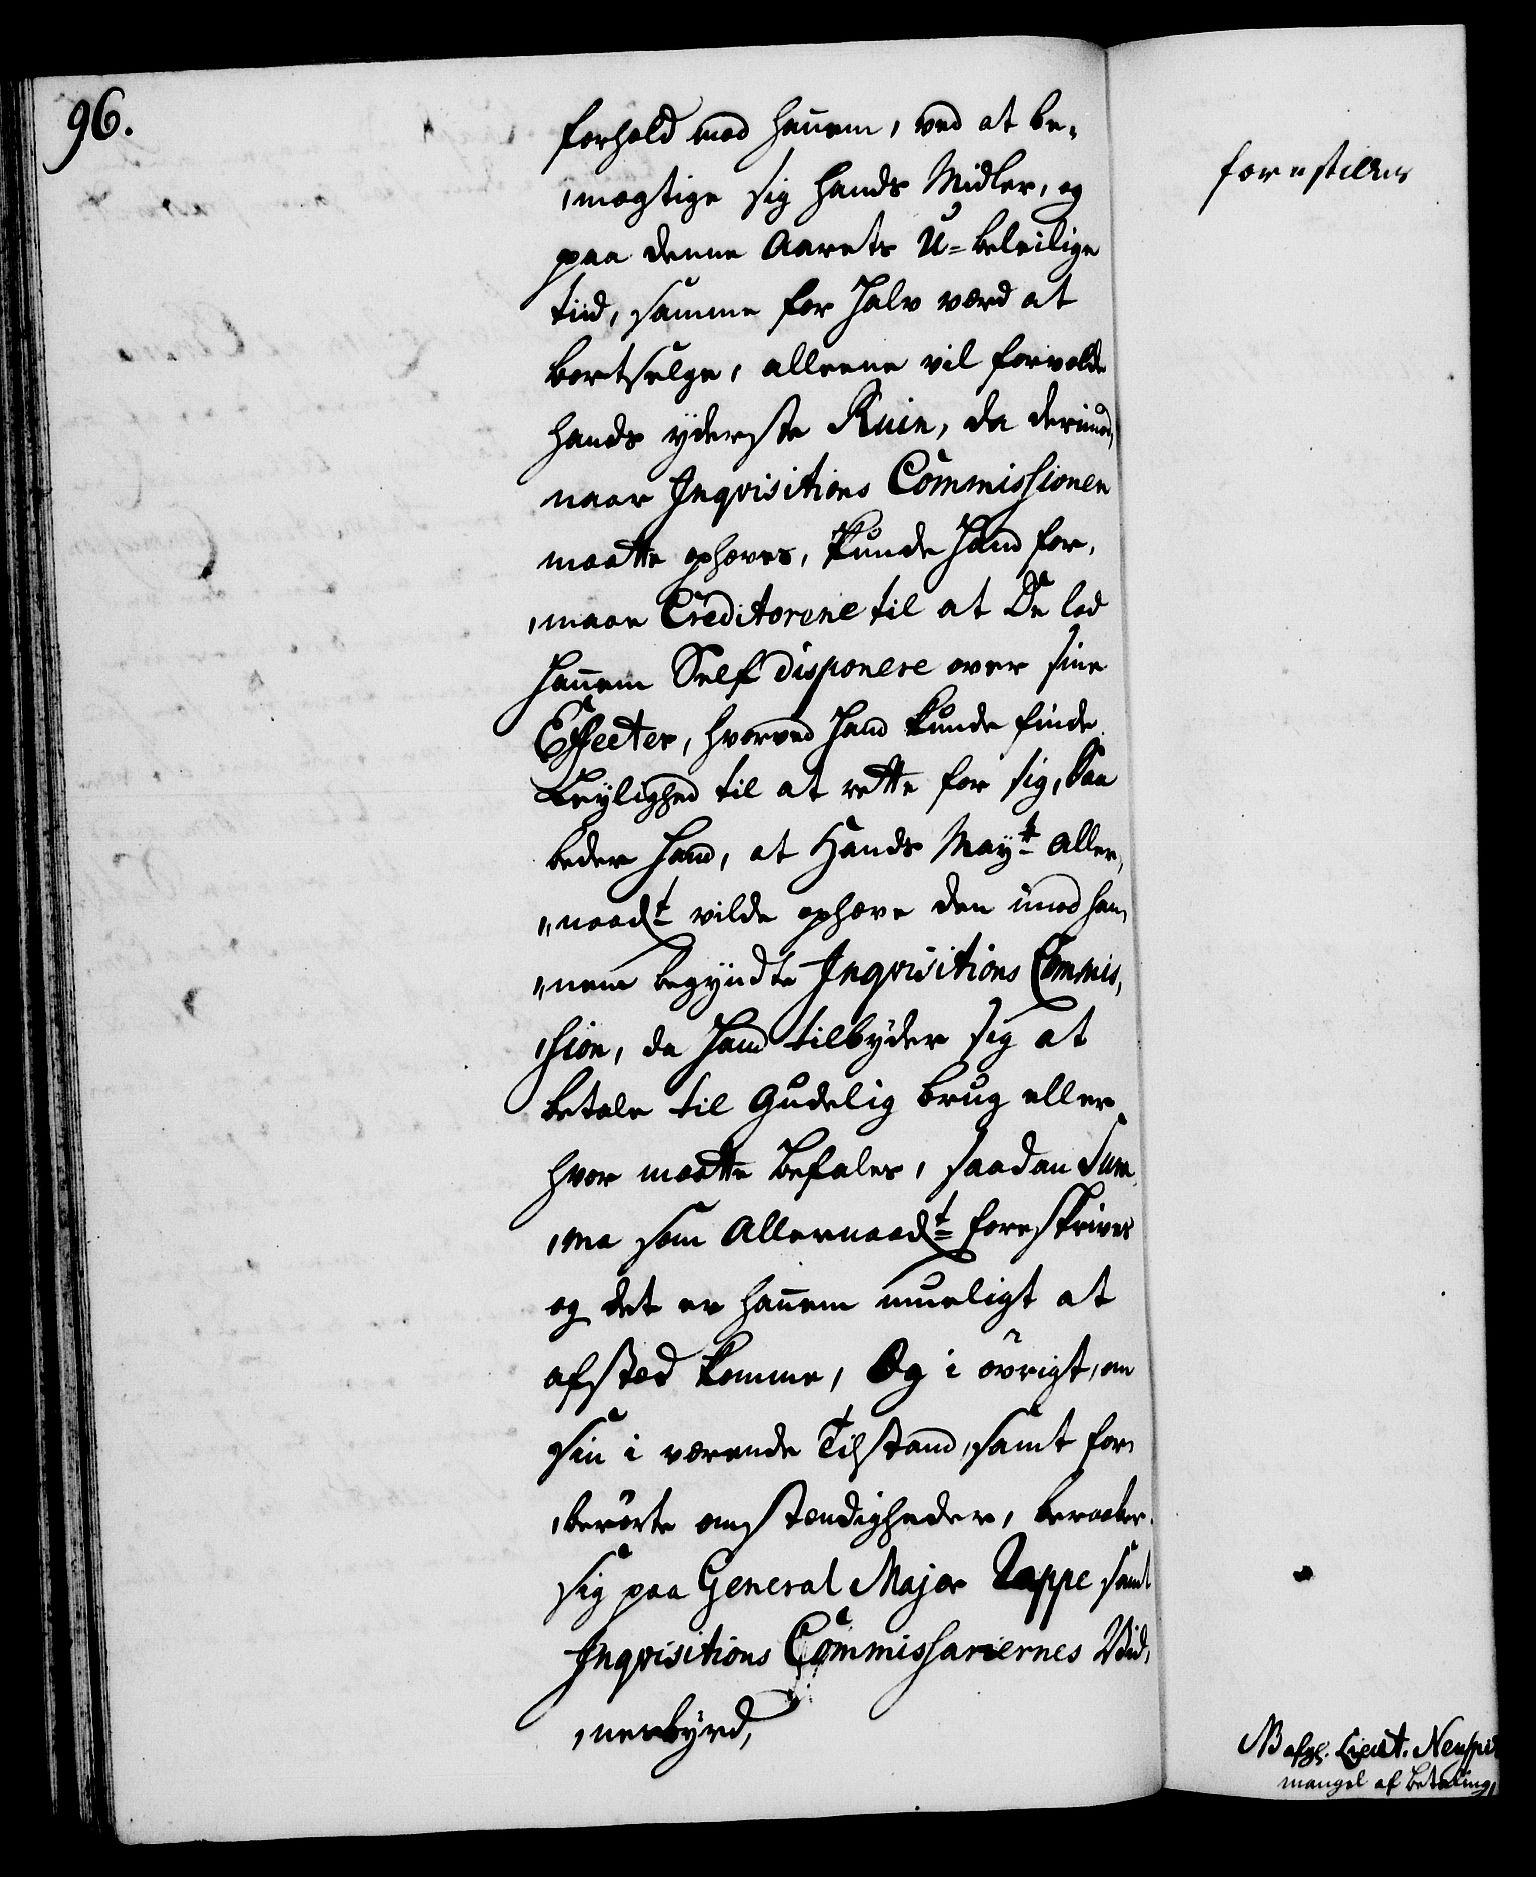 96.
forhold mod hannem, ved at be,
,mægtige sig hands Midler, og
paa denne Aarets U-beleilige
tiid, samme for halv værd at
bortselge, alleene vil forvolde
hands yderste Ruin, da derimod
naar Inqvisitions Commissionen
maatte ophæves, kunde hand for,
,maae Creditorene til at De lod
hannem Self disponere over sine
Effecter, hvorved hand kunde finde
Leylighed til at rette for sig, Saa
beder hand, at Hands Mayt aller,
,,naadt vilde ophæve den imod han,
,,nem begyndte Inqvisitions Commis,
,sion, da hand tilbyder sig at
betale til Gudelig brug eller
hvor maatte befales, saadan Sum,
,ma som Allernaadt foreskrives
og det er hannem mueligt at
afsted komme, Og i øvrigt, om
sin i værende Tilstand, samt for,
,berørte omstændigheder, beraaber
sig paa General Major Rappe samt
Inqvisitions Commissariernes Vid,
,nesbyrd,
forestilles
NB afg. Lieut. Neuspi
mangel af betaling,